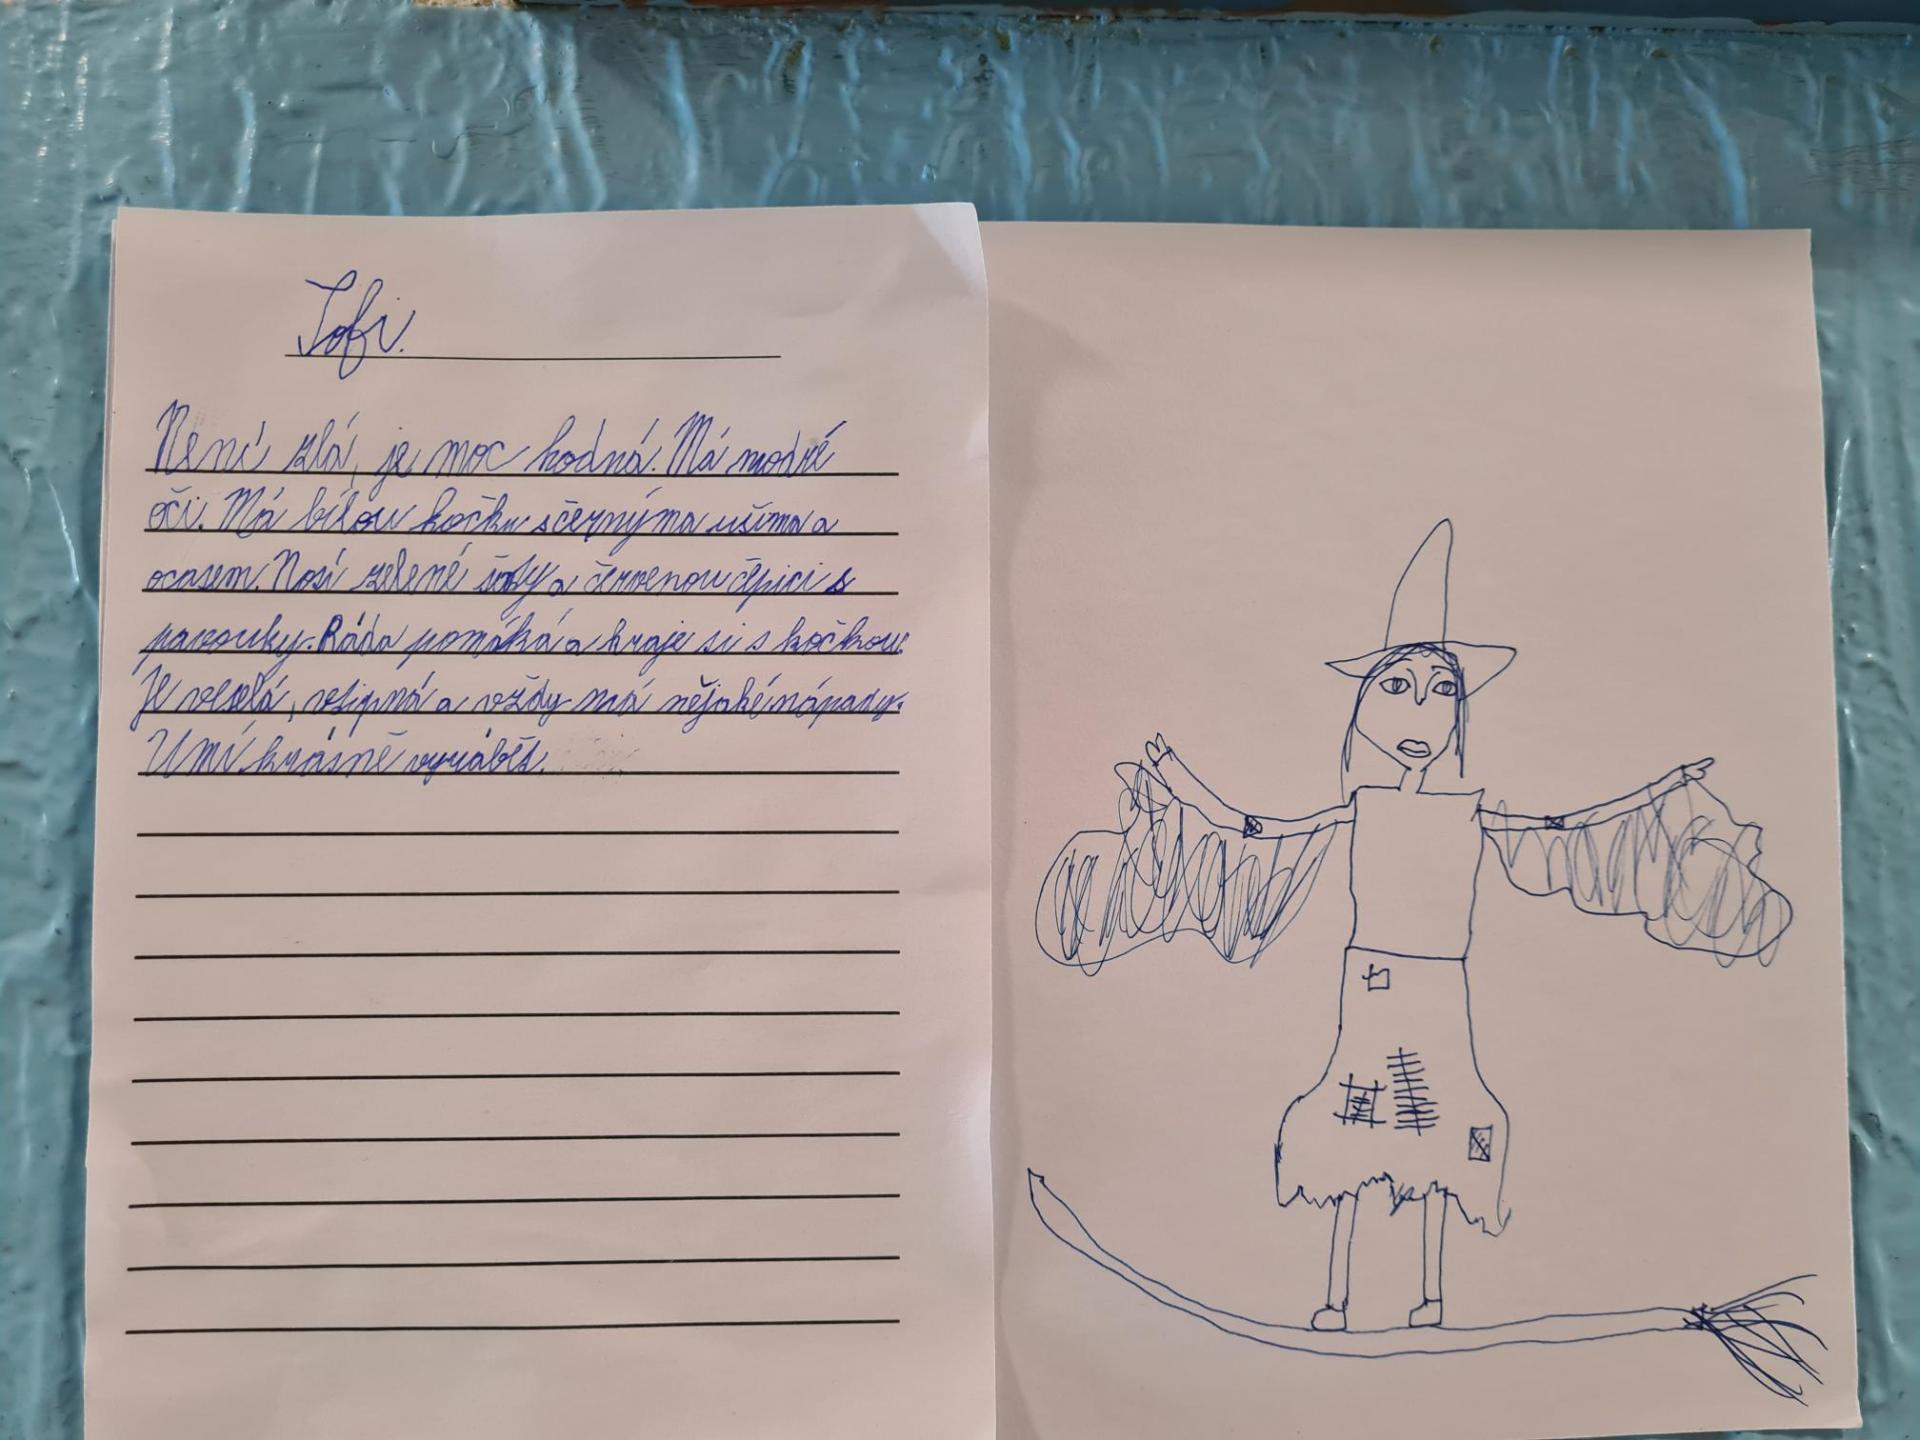 Sofi.
Není zlá, je moc hodná. Má modré
oči. Má bílou kočku s černýma ušima a
ocasem. Nosí zelené šaty a červenou čepici s
pavouky. Ráda pomáhá a hraje si s kočkou.
Je veselá, vtipná a vždy má nějaké nápady.
Umí krásně vyrábět.